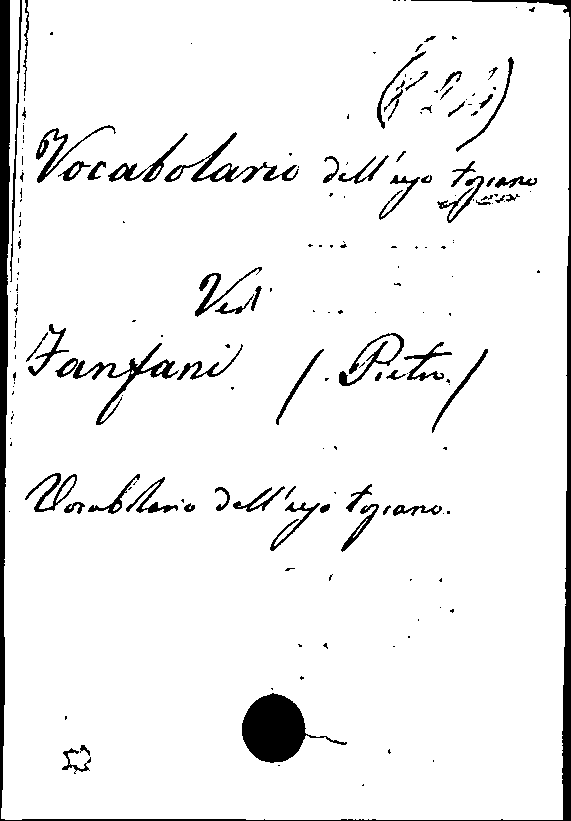 Vocabolario dell'uso toscano
Vedi
Fanfani (Pietro)
Vocabolario dell'uso toscano.